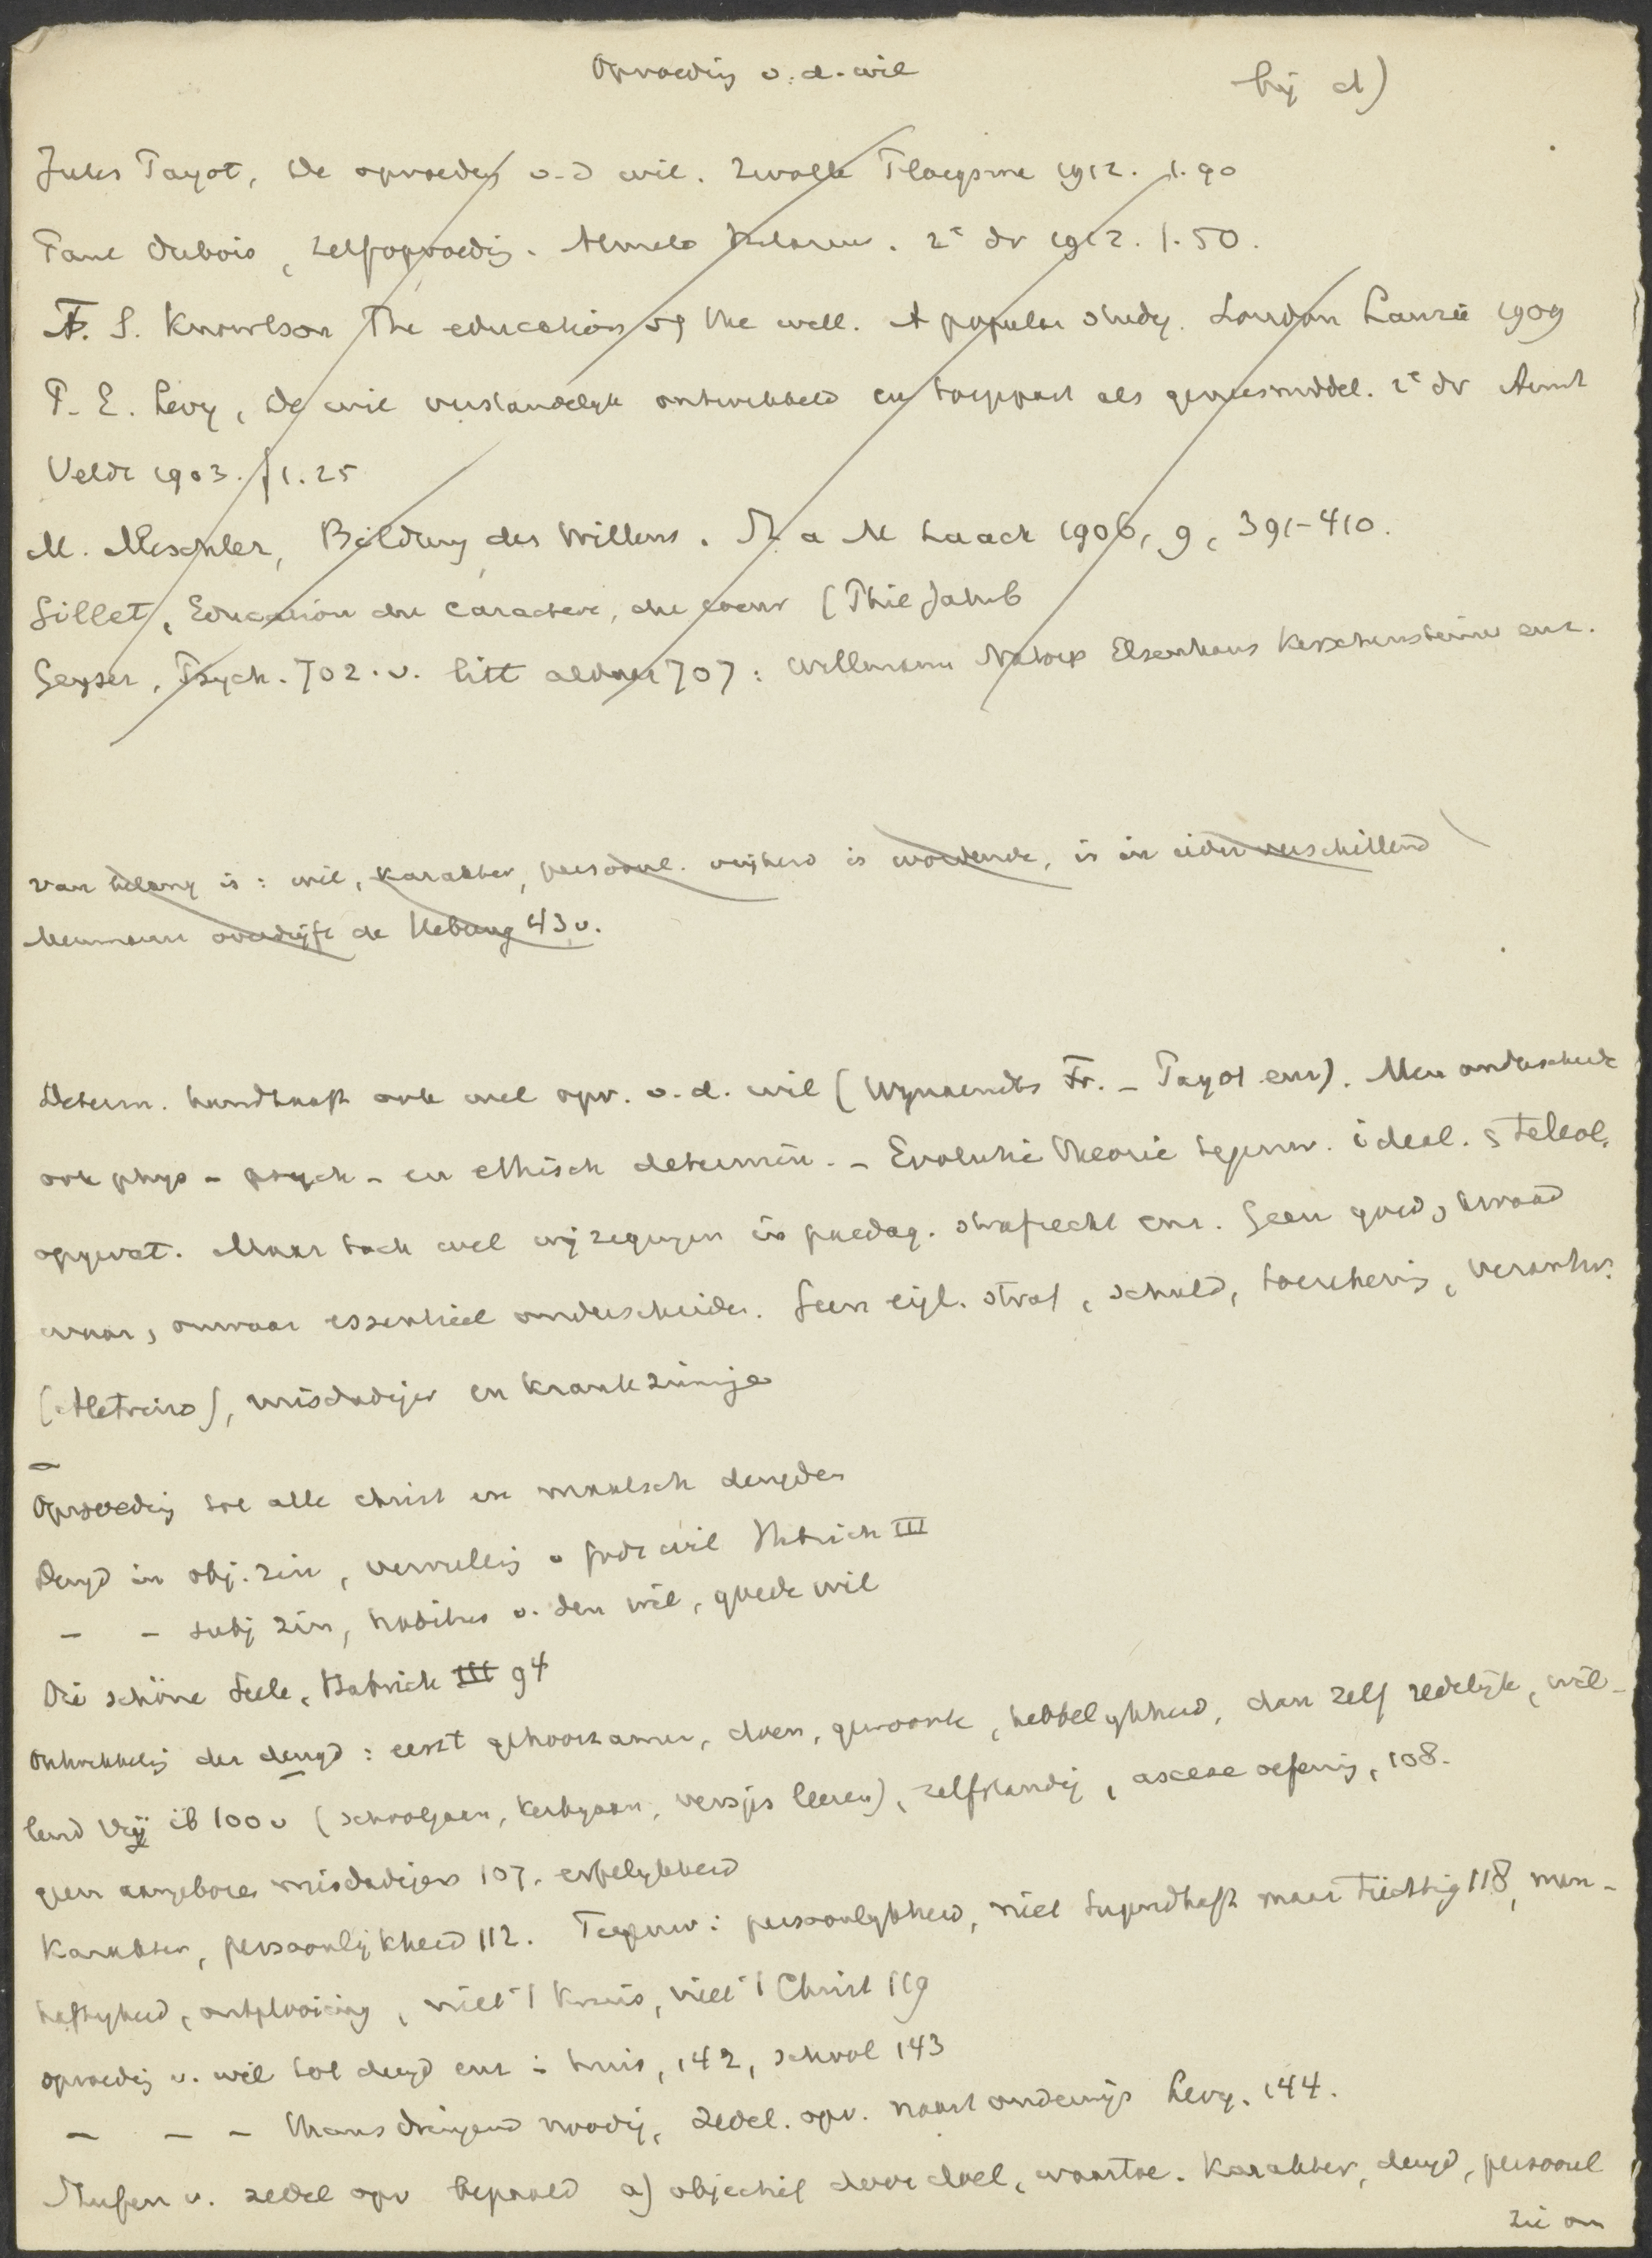 Opvoeding v. d. wil
bij d)
Jules Payot, De opvoeding v. d wil. Zwolle Ploegsma 1912. 1.90
Paul Dubois, Zelfopvoedig. Almelo Hilarius. 2e dr 1912. 1.50.
F. S. Knowlson The education of the will. A popular study. London Laurie 1909
P. E. Levy, De wil verstandelijk ontwikkeld en toegepast als geneesmiddel. 2e dr Amst
Veldt 1903. f 1.25
M. Meschler, Bildung des Willens. St a M Laach 1906, 9, 391-410.
Gillet, Education du caractere, du coeur (Phil Jahrb
Geyser, Psych. 702. v. litt aldaar 707: Willmann Natorp Elsenhans Kerschensteiner enz.
van belang is: wil, karakter, persoonl. vrijheid is wordende, is in ieder verschillend
Meumann overdrijft de Uebung 43 v.
Determ. handhaaft ook wel opv. v. d. wil (Wynaendts Fr. - Payot enz). Men onderscheide
ook phys - psych - en ethisch determin. - Evolutie theorie tegenw. ideal. & teleol.
opgevat. Maar toch wel wijzigingen in paedag. strafrecht enz. Geen goed, kwaad
waar, onwaar essentieel onderscheiden. Geen eigl. straf, schuld, toerekenig, verantw.
(Aletrino), misdadiger en krankzinnige
Opvoedig tot alle christ en maatsch deugden
Deugd in obj. zin, vervullig v Gods wil Habrich III
- - subj zin, habitus v. den wil, goede wil
Die schöne Seele, Habrich III 94
Ontwikkelig der deugd: eerst gehoorzamen, doen, gewoonte, hebbelijkheid, dan zelf redelijk, wil-
lend vrij ib 100 v (schoolgaan, kerkgaan, versjes leeren), zelfstandig, ascese oefenig, 108.
geen aangeboren misdadigers 107. erfelijkheid
Karakter, persoonlijkheid 112. Tegenw: persoonlijkheid, niet tugendhaft maar tüchtig 118, man-
haftigheid, ontplooiing, niet 't kruis, niet 't Christ 119
opvoedig v. wil tot deugd enz in huis, 142, school 143
- - - thans dringend noodig, zedel. opv. naast onderwijs Levy. 144.
Stufen v. zedel opv bepaald a) objectief door doel, waartoe. karakter, deugd, persoonl
zie om